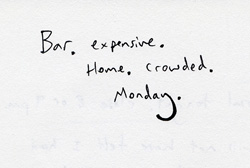 Bar. expensive.
Home. crowded.
Monday.